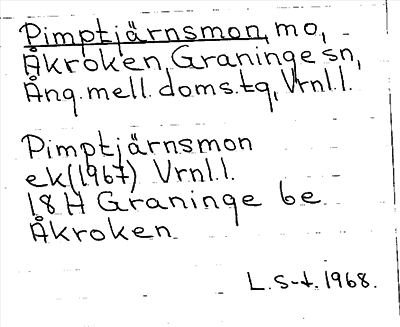 Pimptjärnsmon, mo,
Åkroken, Graninge sn,
Ång. mell. doms.tg, Vrnl.l.
Pimptjärnsmon
ek(1967) Vrnl.l.
18H Graninge 6e
Åkroken
L. S-t. 1968.